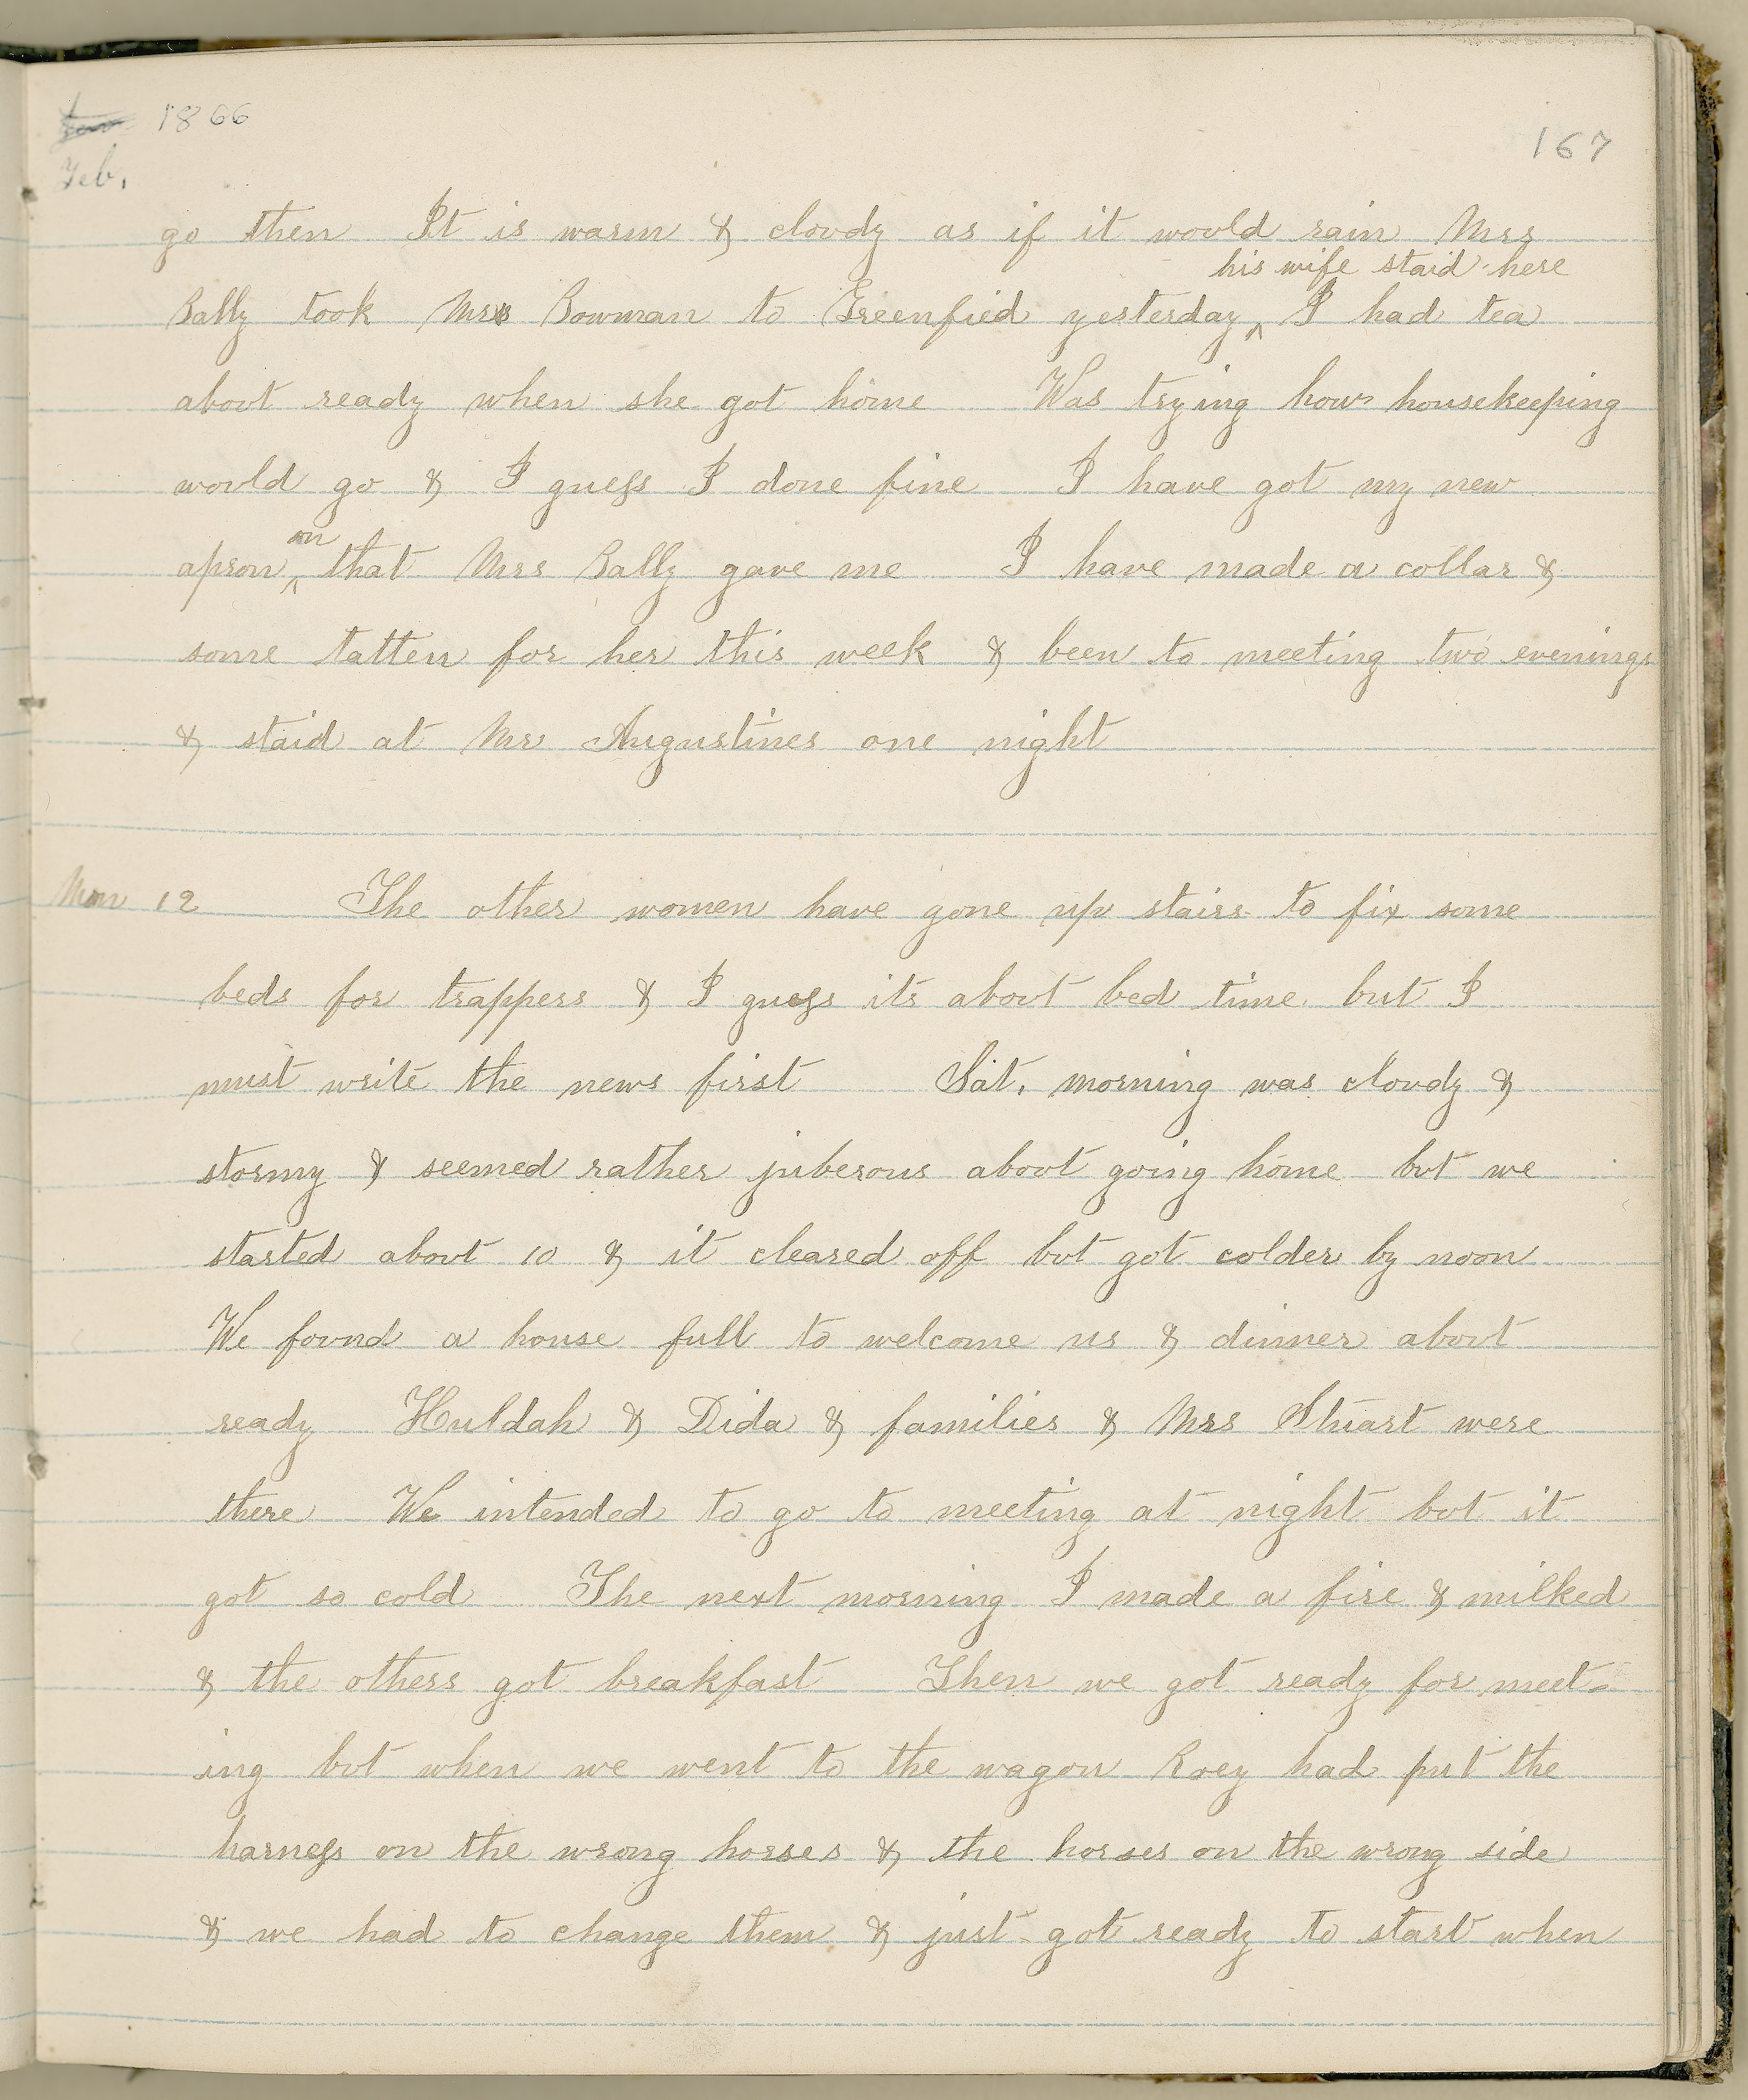 Jan 1866
167
Feb.
go then It is warm & cloudy as if it would rain Mrs
his wife staid here
Bally took Mr Bowman to Greenfied yesterday ^ I had tea
about ready when she got home Was trying how housekeeping
would go & I guess I done fine I have got my new
on
apron ^ that Mrs Bally gave me I have made a collar &
some tatten for her this week & been to meeting two evenings
& staid at Mr Augustines one night
Mon 12 The other women have gone up stairs to fix some
beds for trappers & I guess its about bed time but I
must write the news first Sat. morning was cloudy &
stormy & seemed rather juberous about going home but we
started about 10 & it cleared off but got colder by noon
We found a house full to welcome us & dinner about
ready Huldah & Dida & families & Mrs Stuart were
there We intended to go to meeting at night but it
got so cold The next morning I made a fire & milked
& the others got breakfast Then we got ready for meet-
ing but when we went to the wagon Roey had put the
harness on the wrong horses & the horses on the wrong side
& we had to change them & just got ready to start when